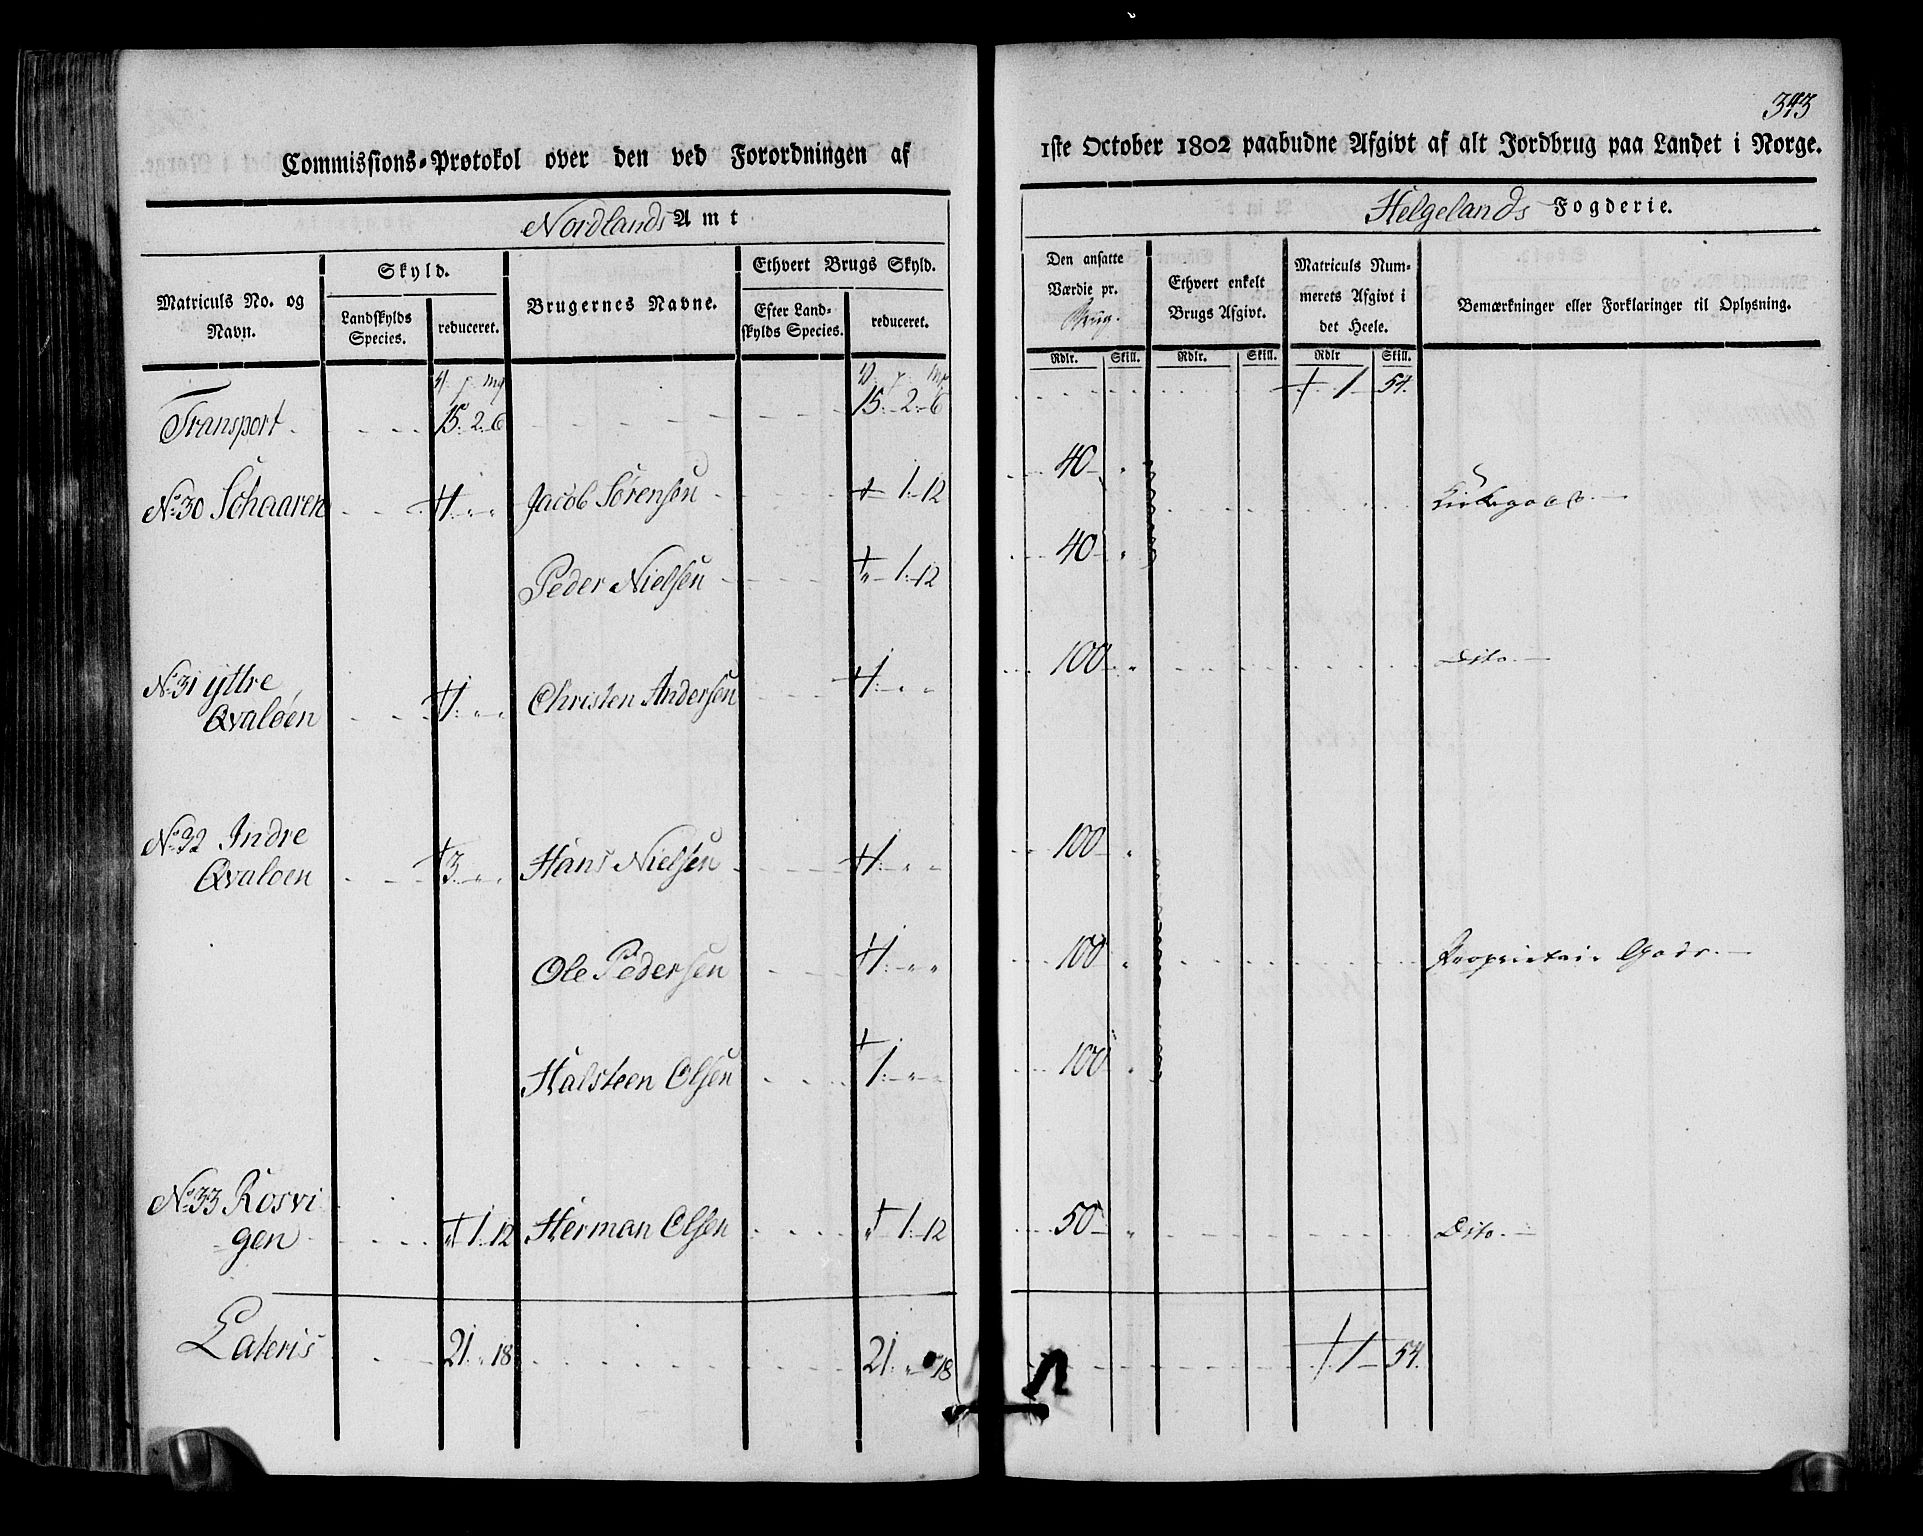 343
Commissions-Protokol over den ved Forordningen af
1ste October 1802 paabudne Afgivt af alt Jordbrug paa Landet i Norge.
Nordlands Amt
Helgelands Fogderie.
Matriculs No. og Navn.
Skyld.
Landskylds Species.
reduceret.
Brugernes Navne.
Ethvert Brugs Skyld.
Efter Landskylds Species.
reduceret.
Den ansatte Værdie pr. Brug.
Ethvert enkelt Brugs Afgivt.
Matriculs Nummerets Afgivt i det Heele.
Bemærkninger eller Forklaringer til Oplysning.
Rdlr. Skill. Rdlr. Skill. Rdlr Skill.
Transport 15. 2. 6 15. 2. 6 1 54.
No 30 Schaaren 1 " " Jacob Sørensen 1. 12 40 "
Peder Nielsen " 1. 12 40 "
No 31 yttre
Qvaløen 1 " " Christen Andersen 1 " " 100 " Dito.
No 32 Indre
Qvaløen 3 " " Hans Nielsen 1 " " 100 "
Ole Pedersen 1 " " 100 " Proprietair Gods.
Halsteen Olsen 1 " " 100 "
No 33 Rosvi
gen " 1. 12 Herman Olsen " 1. 12 50 " Dito.
Lateris 21. " 18 21. " 18 1 54.